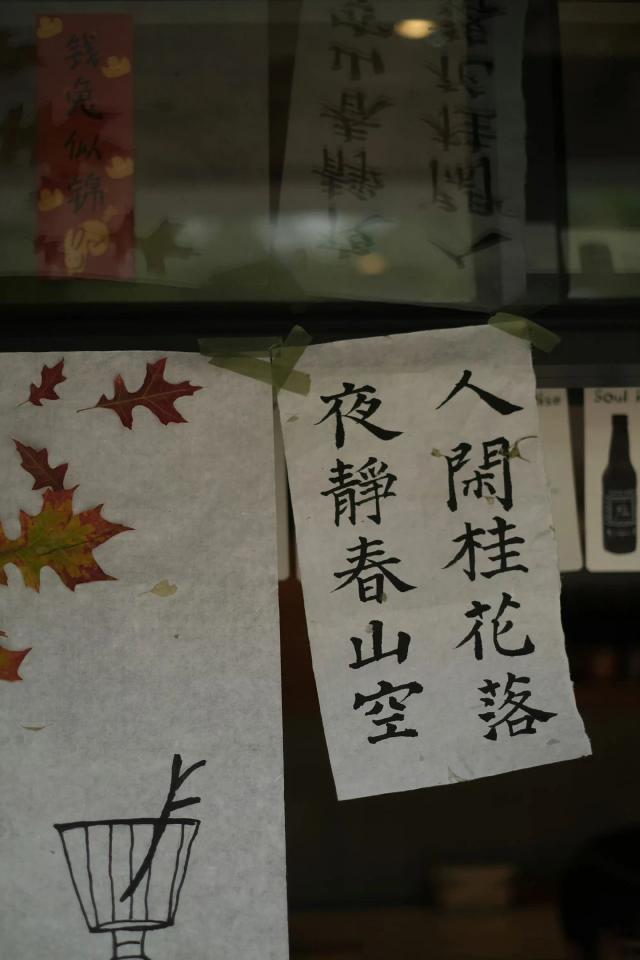 钱兔似锦
人閑桂花落
夜靜春山空
Soul